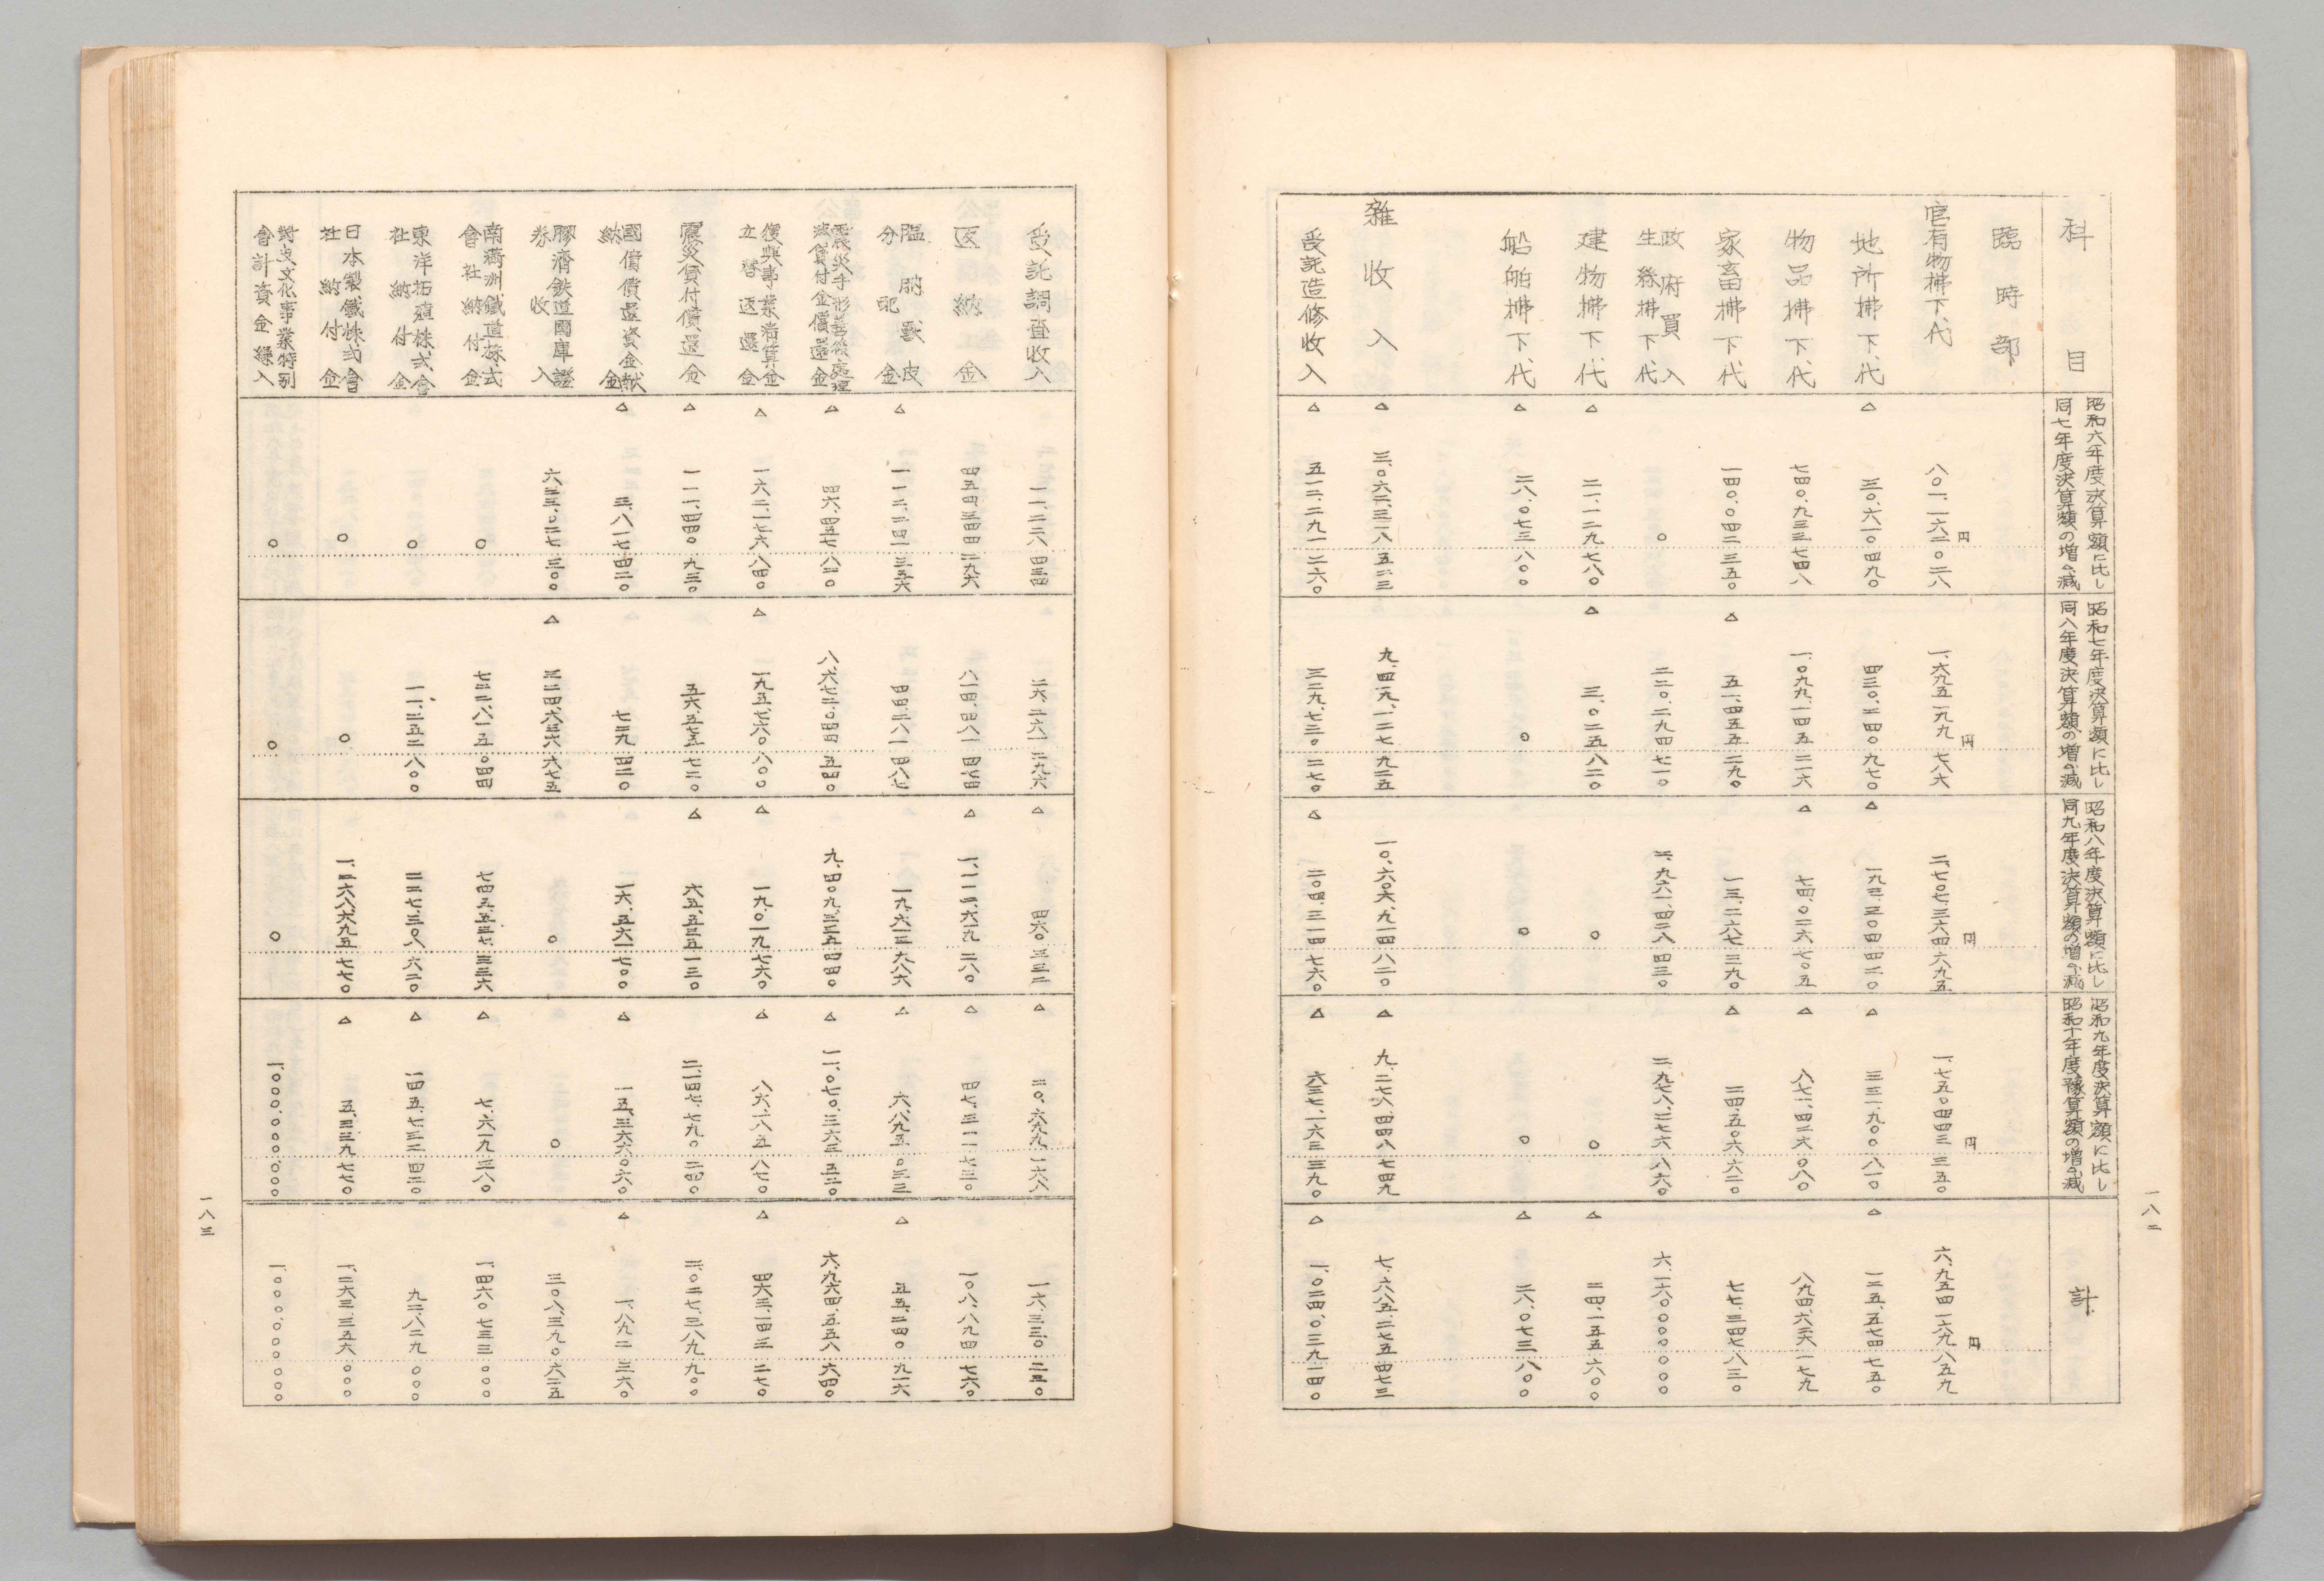 一八二
科目
昭和六年度決算額に比し
同七年度決算額の増△減
昭和七年度決算額に比し
同八年度決算額の増△減
昭和八年度決算額に比し
同九年度決算額の増△減
昭和九年度決算額に比し
昭和十年度豫算額の増△減
計
臨時部
官有物拂下代 八〇一、一六二円〇二八 一、六九五、一九九円七八六 二、七〇七、三六四円六九五 一、七五〇、四四三円三五〇 六、九五四、一六九円八五九
地所拂下代 △ 三〇、六一〇 四九〇 四三〇、二四〇 九七〇 △ 一九三、三〇四 四二〇 △ 三三一、九〇〇 八一〇 △ 一二五、五七四 七五〇
物品拂下代 七四〇、九三三 七四八 一、〇九九、一四五 二一六 △ 七四、〇二六 七〇五 △ 八七一、四二六 〇八〇 八九四、六二六 一七九
家畜拂下代 一四〇、〇四二 三五〇 △ 五一、四五五 二九〇 一三、二六七 三九〇 △ 二四、五〇六 六二〇 七七、三四七 八三〇
政府買入
生絲拂下代 〇 二二〇、二九四 七一〇 二、九六一、四二八 四三〇 二、九七八、二七六 八六〇 六、一六〇、〇〇〇 〇〇〇
建物拂下代 △ 二一、一二九 七八〇 △ 三、〇二五 八二〇 〇 〇 △ 二四、一五五 六〇〇
船舶拂下代 △ 二八、〇七三 八〇〇 〇 〇 〇 △ 二八、〇七三 八〇〇
雜收入 △ 三、〇六二、三一八 五二三 九、四一九、一二七 九二五 一〇、六〇六、九一四 八二〇 △ 九、二七八、四四八 七四九 七、六八五、二七五 四七三
受託造修收入 △ 五一二、二九一 二六〇 三二九、七三〇 二七〇 △ 二〇四、三一四 七六〇 △ 六三七、一六三 三九〇 △ 一、〇二四、〇三九 一四〇
受託調査收入 一一、二二八 四三四 二六、二六一 二九六 △ 四六〇 三三二 △ 二〇、六九九 一六八 一六、三三〇 二三〇
返納金 四五四、三四四 二九六 八一四、四八一 四七四 △ 一、一一二、六一九 二八〇 △ 四七、三一一 七三〇 一〇八、八九四 七六〇
膃肭獸皮
分配金 △ 一一二、二四一 三五六 四四、二八一 四八七 一九、六一三 九八六 △ 六、八九五 〇三三 △ 五五、二四〇 九一六
震災手形善後處理
法貸付金償還金 △ 四六、四五七 八二〇 八、六七二、〇四四 五四〇 九、四〇九、三三五 四四〇 △ 一一、〇七〇、三六三 五二〇 六、九六四、五五八 六四〇
復興事業清算金
立替返還金 △ 一六二、一七六 八四〇 △ 一九五、七六〇 八〇〇 △ 一九、〇一九 七六〇 △ 八六、一八五 八七〇 △ 四六三、一四三 二七〇
震災貸付償還金 △ 一一一、四四〇 九三〇 五六、五七五 七二〇 △ 六五、五三五 一三〇 二、一四七、七九〇 二四〇 二、〇二七、三八九 九〇〇
國債償還資金獻
納金 △ 三、八一七 四二〇 七二九 四二〇 一六、五六一 七〇〇 △ 一五、三六六 〇六〇 △ 一、八九二 三六〇
膠濟鉄道國庫證
券收入 六三三、〇二七 三〇〇 △ 三二四、六三六 六七五 〇 〇 三〇八、三九〇 六二五
南滿洲鐵道株式
會社納付金 〇 七二二、八一五 〇四四 七四五、五三七 三三六 △ 七、六一九 三八〇 一、四六〇、七三三 〇〇〇
東洋拓殖株式會
社納付金 〇 一一、二五二 八〇〇 二二七、三〇八 六二〇 △ 一四五、七三二 四二〇 九二、八二九 〇〇〇
日本製鐵株式會
社納付金 〇 〇 一、二六八、六九五 七七〇 △ 五、三三九 七七〇 一、二六三、三五六 〇〇〇
對支文化事業特別
會計資金繰入 〇 〇 〇 一、〇〇〇、〇〇〇 〇〇〇 一、〇〇〇、〇〇〇 〇〇〇
一八三